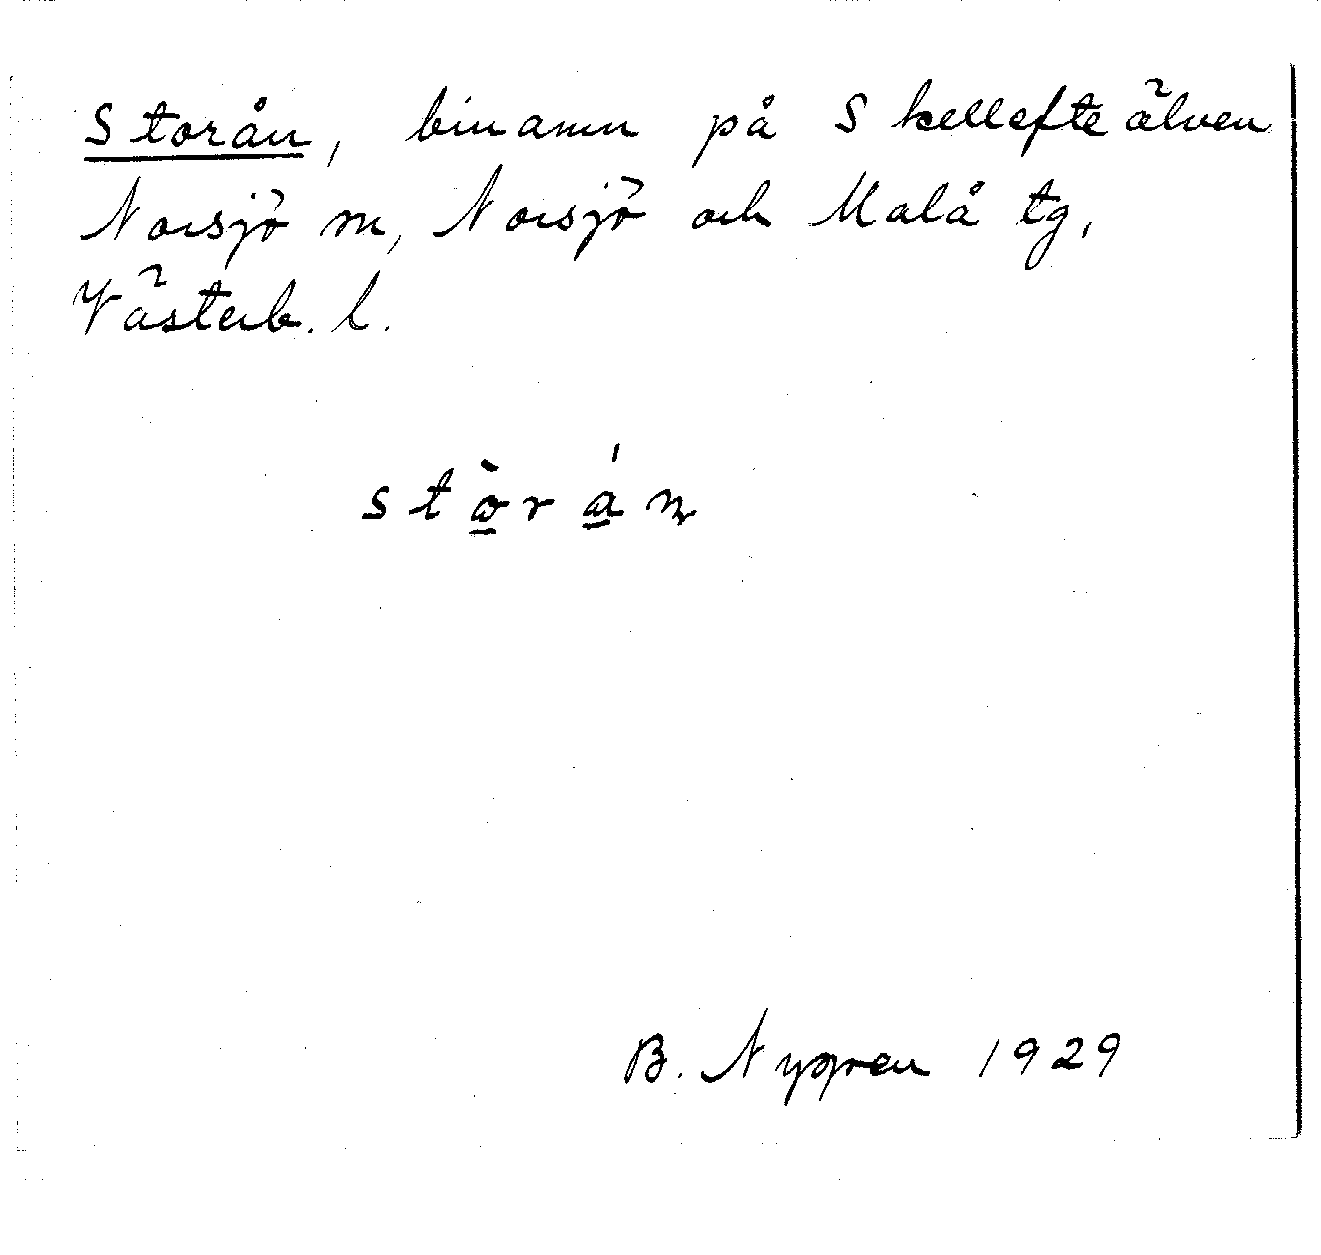 Storån, binamn på Skellefteälven
Norsjö m, Norsjö och Malå tg,
Västerb. l.
stòrán
B. Nygren 1929